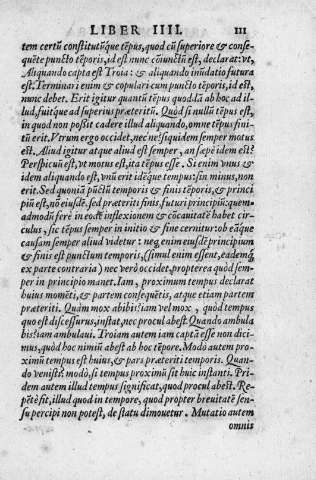 LIBER IIII. 111
tem certū constitutúque tēpus, quod cū superiore & conse-
quēte puncto tēporis, id est nunc cōiunctū est, declarat: vt,
Aliquando capta est Troia: & aliquando inūdatio futura
est. Terminari enim & copulari cum puncto tēporis, id est,
nunc debet. Erit igitur quantū tēpus quoddā ab hoc ad il-
lud, fuitque ad superius præteritū. Quòd si nullū tēpus est,
in quod non possit cadere illud aliquando, omne tēpus fini-
tū erit. Vtrum ergo occidet, nec ne? siquidem semper motus
est. Aliud igitur atque aliud est semper, an sæpe idem est?
Perspicuū est, vt motus est, ita tēpus esse. Si enim vnus &
idem aliquando est, vnū erit idéque tempus: sin minus, non
erit. Sed quoniā pūctū temporis & finis tēporis, & princi-
piū est, nō eiusdē. sed præteriti finis, futuri principiū: quem-
admodū ferè in eodē inflexionem & cōcauitatē habet cir-
culus, sic tēpus semper in initio & fine cernitur: ob eāque
causam semper aliud videtur: neq; enim eiusdē principium
& finis est punctum temporis, (simul enim essent, eadémq;
ex parte contraria) nec verò occidet, propterea quòd sem-
per in principio manet. Iam, proximum tempus declarat
huius momēti, & partem consequētis, atque etiam partem
præteriti. Quàm mox abibis? iam vel mox, quòd tempus
quo est discessurus, instat, nec procul abest. Quando ambula
bis? iam ambulaui. Troiam autem iam captā esse non dici-
mus, quòd hoc nimiū abest ab hoc tēpore. Modò autem pro-
ximū tempus est huius, & pars præteriti temporis. Quan-
do venisti? modò, si tempus proximū sit huic instanti. Pri-
dem autem illud tempus significat, quod procul abest. Re-
pētè fit, illud quod in tempore, quod propter breuitatē sen-
su percipi non potest, de statu dimouetur. Mutatio autem
omnis